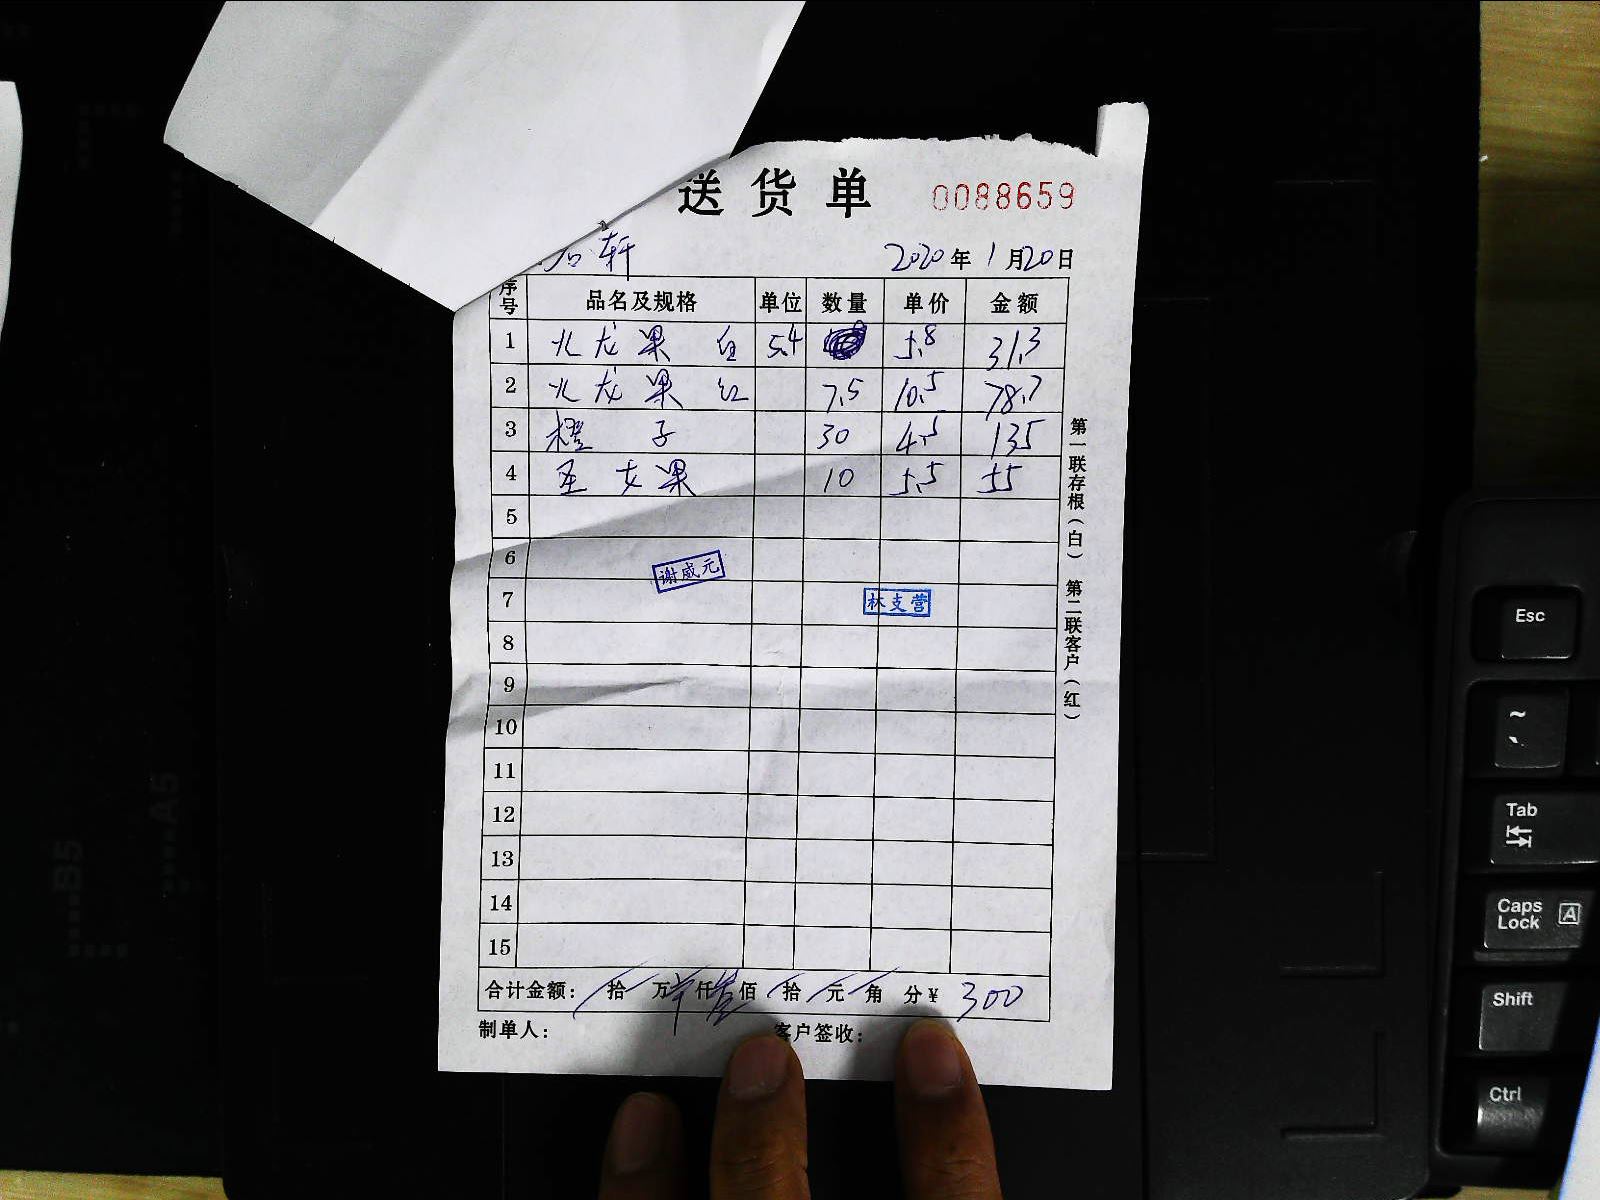 送货单 0088659
轩 2020年1月20日
序号 品名及规格 单位 数量 单价 金额
1 火龙果 白 5.4 5.8 31.3
2 火龙果 红 7.5 10.5 78.7
3 橙子 30 4.5 135
4 圣女果 10 5.5 55
5
6
谢威元
7
林支营
8
9
10
11
12
13
14
15
合计金额: 拾 万 仟 佰 拾 元 角 分 ¥ 300
制单人: 客户签收:
第一联存根(白) 第二联客户(红)
B5
A5
Esc
~
Tab
Caps Lock A
Shift
Ctrl